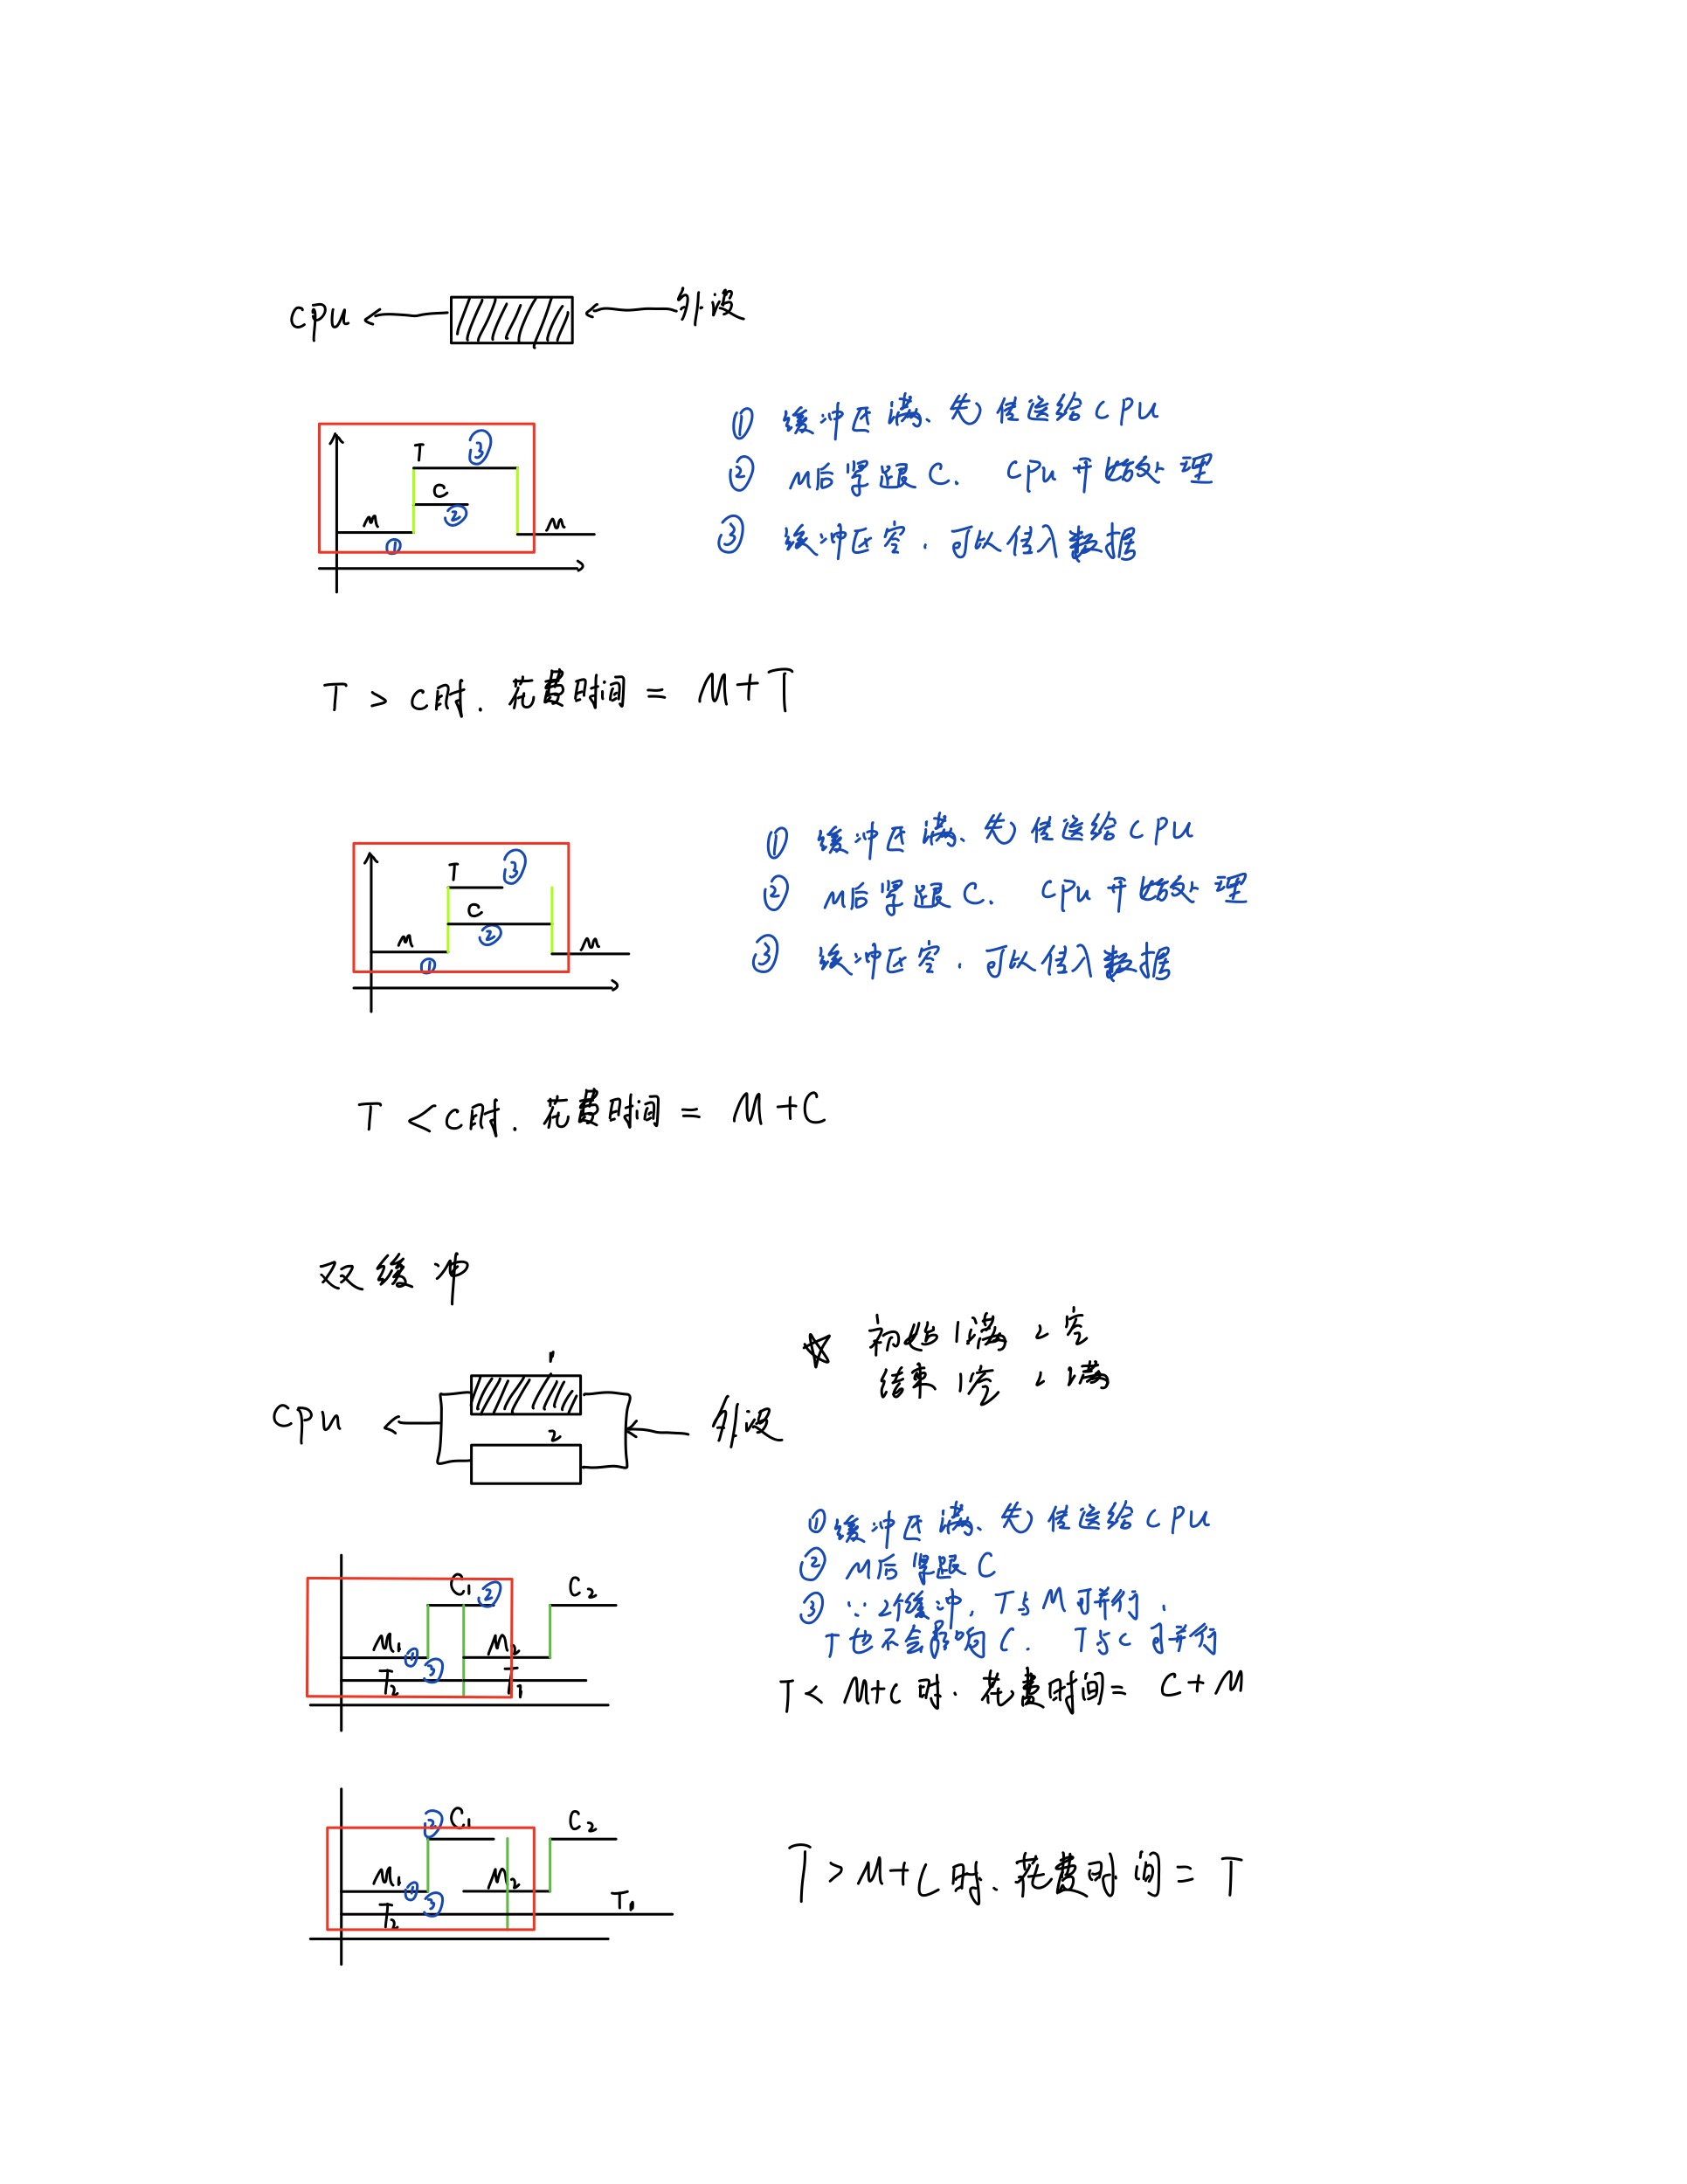 CPU ← ← 外设
T ③
C
②
M
①
M
① 缓冲区满、先传送给CPU
② M后紧跟C. CPU开始处理
③ 缓冲区空，可以传入数据
T > C时．花费时间 = M+T
T ③
C
②
M
①
M
① 缓冲区满、先传送给CPU
② M后紧跟C. CPU开始处理
③ 缓冲区空，可以传入数据
T < C时．花费时间 = M+C
双缓冲
☆ 初始1满 2空
结束1空 2满
1
CPU ← ← 外设
2
① 缓冲区满、先传送给CPU
② M后紧跟C
③ ∵2个缓冲，T与M可并行．
T也不会影响C． T与C可并行
C₁ ② C₂
M₁ ① M₂
T₂ ③ T₁
T < M+C 时．花费时间 = C+M
② C₁ C₂
M₁ ① M₂
T₂ ③ T₁
T > M+C 时．花费时间 = T